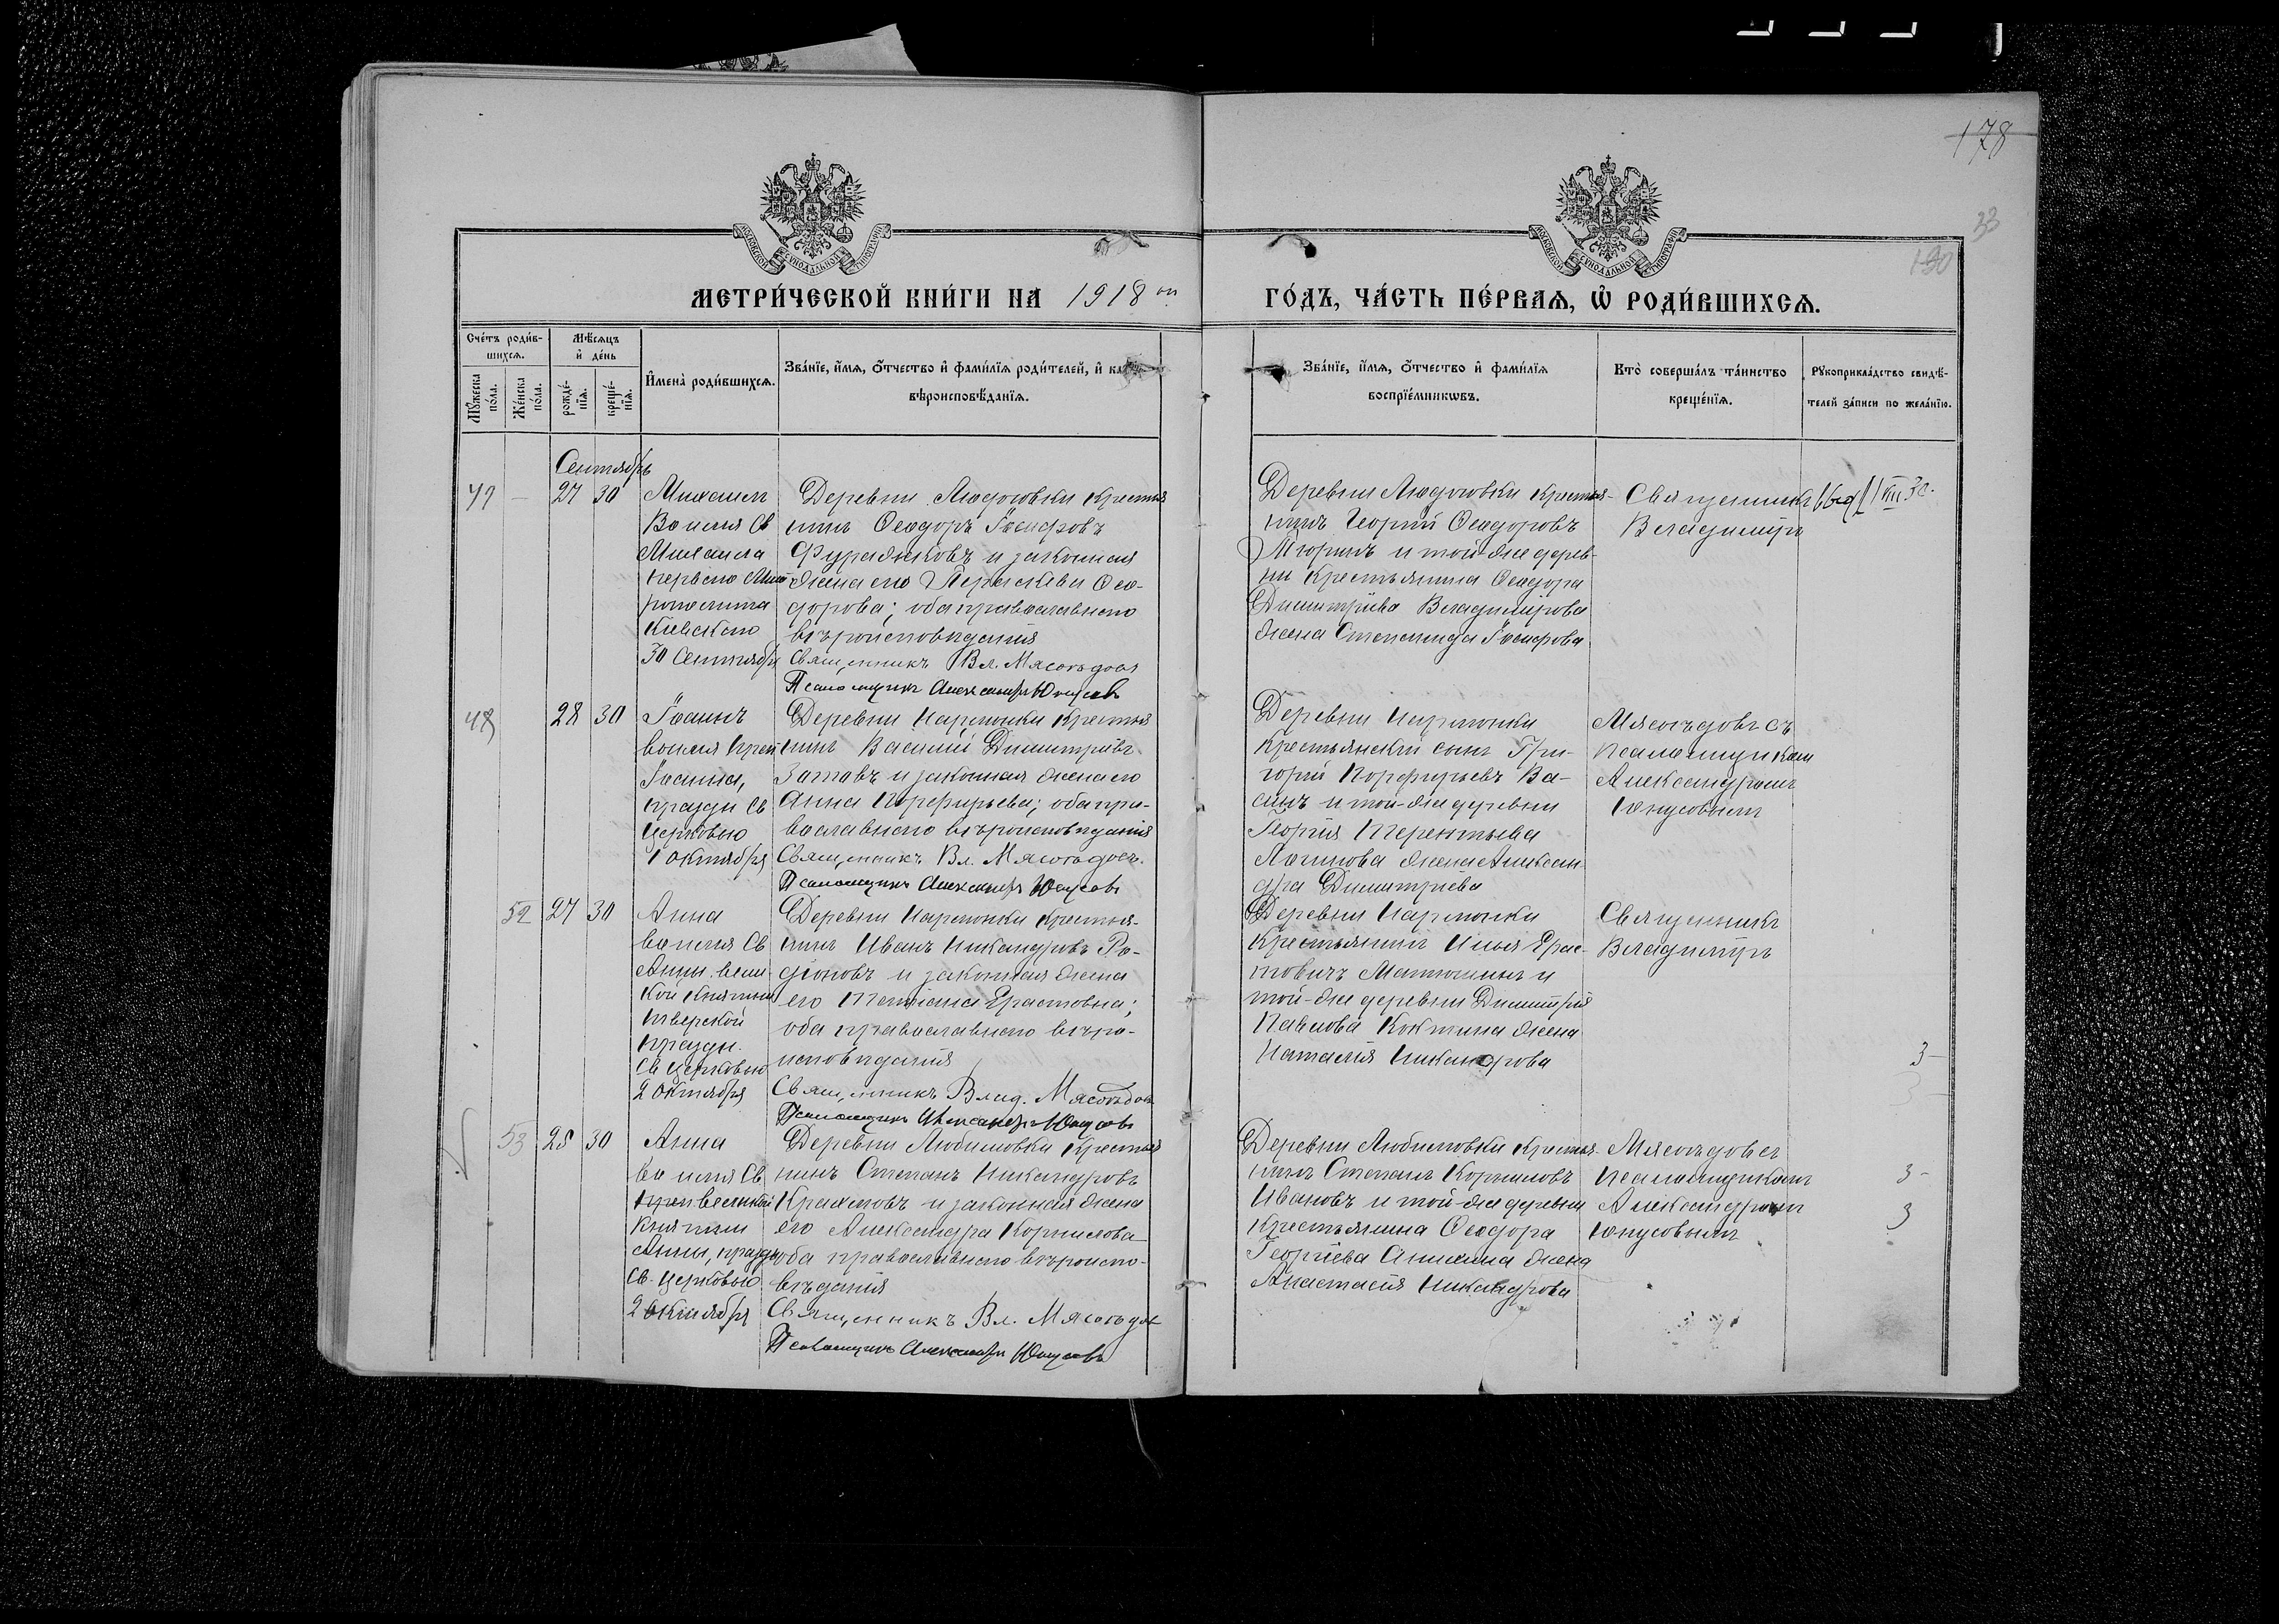 178
33
130
МОСКОВСКОЙ СѴНОДАЛЬНОЙ ТИПОГРАФІИ
МОСКОВСКОЙ СѴНОДАЛЬНОЙ ТИПОГРАФІИ
МЕТРИ́ЧЕСКОЙ КНИ́ГИ НА 1918 ГО́ДЪ, ЧА́СТЬ ПЕ́РВАѦ, Ѡ҆ РОДИ́ВШИХСѦ.
Сче́тъ роди́в-
шихсѧ.
Мꙋ́жеска
по́ла.
Же́нска
по́ла.
Мѣ́сѧцъ
и҆ де́нь
рожде́-
нїѧ.
креще́-
нїѧ.
И҆мена̀ роди́вшихсѧ.
Зва́нїе, и҆́мѧ, ѻ҆́тчество и҆ фами́лїѧ роди́телей, и҆
вѣроисповѣ́данїѧ.
Зва́нїе, и҆́мѧ, ѻ҆́тчество и҆ фами́лїѧ
воспрїе́мникѡвъ.
Кто̀ соверша́лъ та́инство
креще́нїѧ.
Рꙋкоприкла́дство свидѣ́-
телей за́писи по жела́нїю.
Сентябрь
27 30
Михаилъ
Во имя Св
Михаила
перваго Мит
рополита
Кіевскаго
30 Сентября
Деревни Людоговки крестья
нинъ Ѳеодоръ Іосифовъ
Фуражковъ и законная
жена его Параскева Ѳео-
дорова; оба православнаго
вѣроисповѣданія
Священникъ Вл. Мясоѣдовъ
Псаломщикъ Александръ Юнусовъ
Деревни Людоговки крестья-
нинъ Георгій Ѳеодоровъ
Тюринъ и той-же дерев-
ни крестьянина Ѳеодора
Димитріева Владимірова
жена Степанида Іосифова
Священникъ
Владиміръ
48 28 30
Іоаннъ
во имя
Іоанна,
праздн Св
Церковью
1 Октября
Деревни Нармонки крестья
нинъ Василій Димитріевъ
Зотовъ и законная жена его
Анна Порфирьева; оба пра-
вославнаго вѣроисповѣданія
Священникъ Вл. Мясоѣдовъ.
Псаломщикъ Александръ Юнусовъ
Деревни Нармонки
крестьянскій сынъ Гри-
горій Порфирьевъ Ва-
синъ и той-же деревни
Георгія Терентьева
Логинова жена Алексан
дра Димитріева
Мясоѣдовъ съ
псаломщикомъ
Александромъ
Юнусовымъ
52 27 30
Анна
во имя Св
Анны вели
кой княгини
Тверской
праздн.
Св Церковью
2 Октября
Деревни Нармонки крестья-
нинъ Иванъ Никандровъ Ро-
діоновъ и законная жена
его Татіана Ерастовна;
оба православнаго вѣро-
исповѣданія
Священникъ Влад. Мясоѣдовъ
Псаломщикъ Александръ Юнусовъ
Деревни Нармонки
крестьянинъ Илья Ерас-
товичъ Матюшинъ и
той-же деревни Димитрія
Павлова Коктина жена
Наталія Никандрова
Священникъ
Владиміръ
3-
53 28 30
Анна
во имя Св
великой
княгини
Анны, праздн
Св. Церковью
2 Октября
Деревни Любимовки крестья
нинъ Степанъ Никандровъ
Крахмовъ и законная жена
его Александра Корнилова
оба православнаго вѣроиспо-
вѣданія
Священникъ Вл. Мясоѣдовъ
Псаломщикъ Александръ Юнусовъ
Деревни Любимовки крестья-
нинъ Степанъ Корниловъ
Ивановъ и той-же деревни
крестьянина Ѳеодора
Георгіева Аникина жена
Анастасія Никандрова
Мясоѣдовъ съ
псаломщикомъ
Александромъ
Юнусовымъ
3-
3